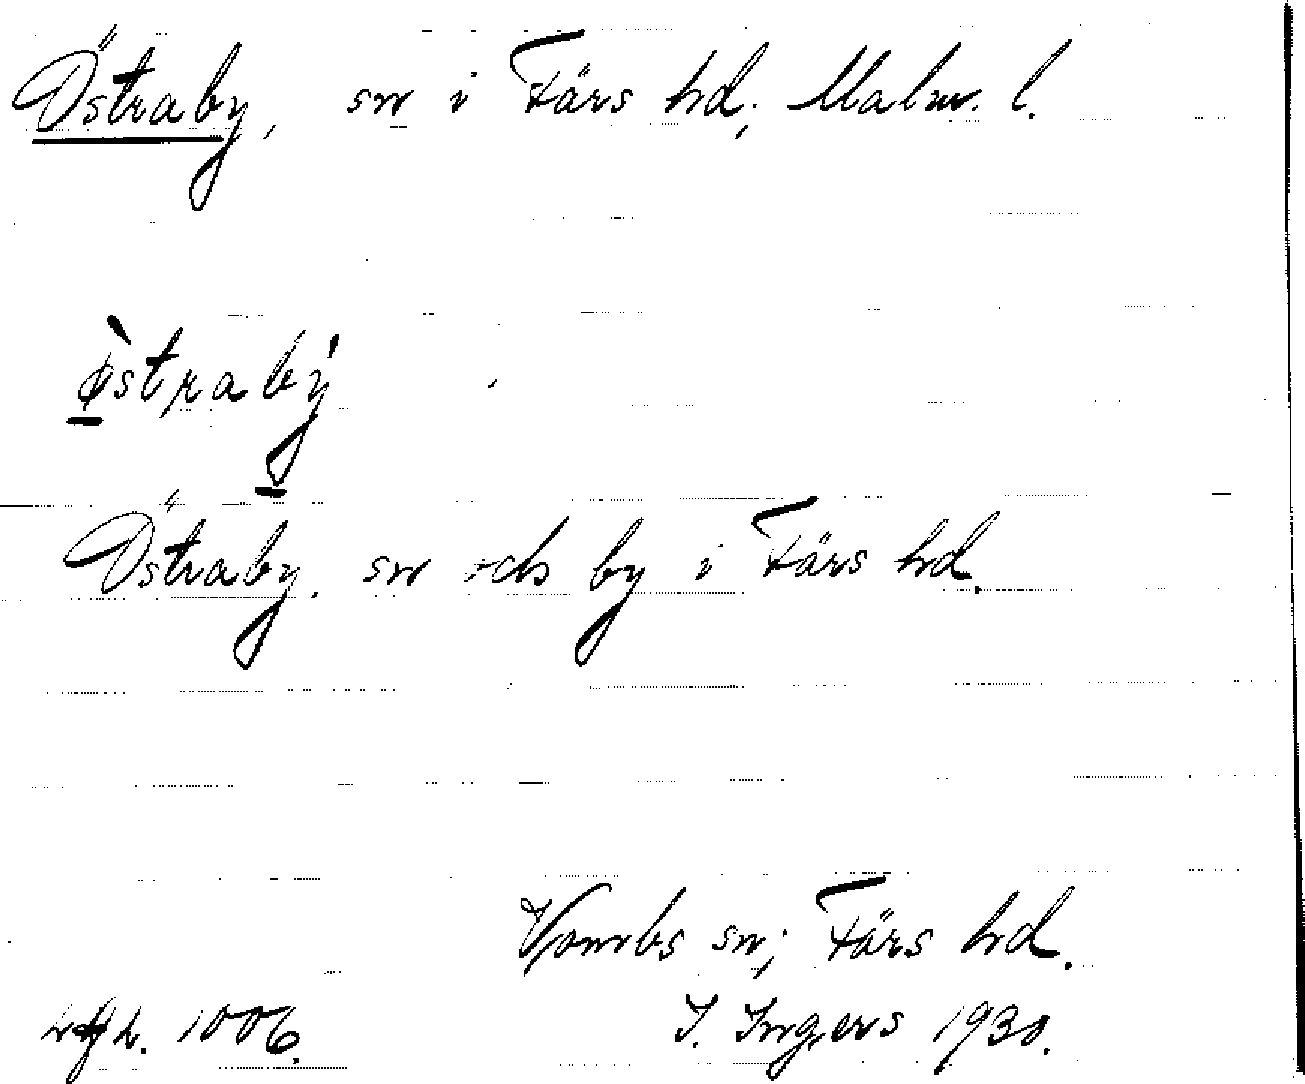 Östraby, sn i Färs hd; Malm. l.
östraby
Östraby. sn och by i Färs hd.
Vombs sn; Färs hd.
1006. I. Ingers 1930.